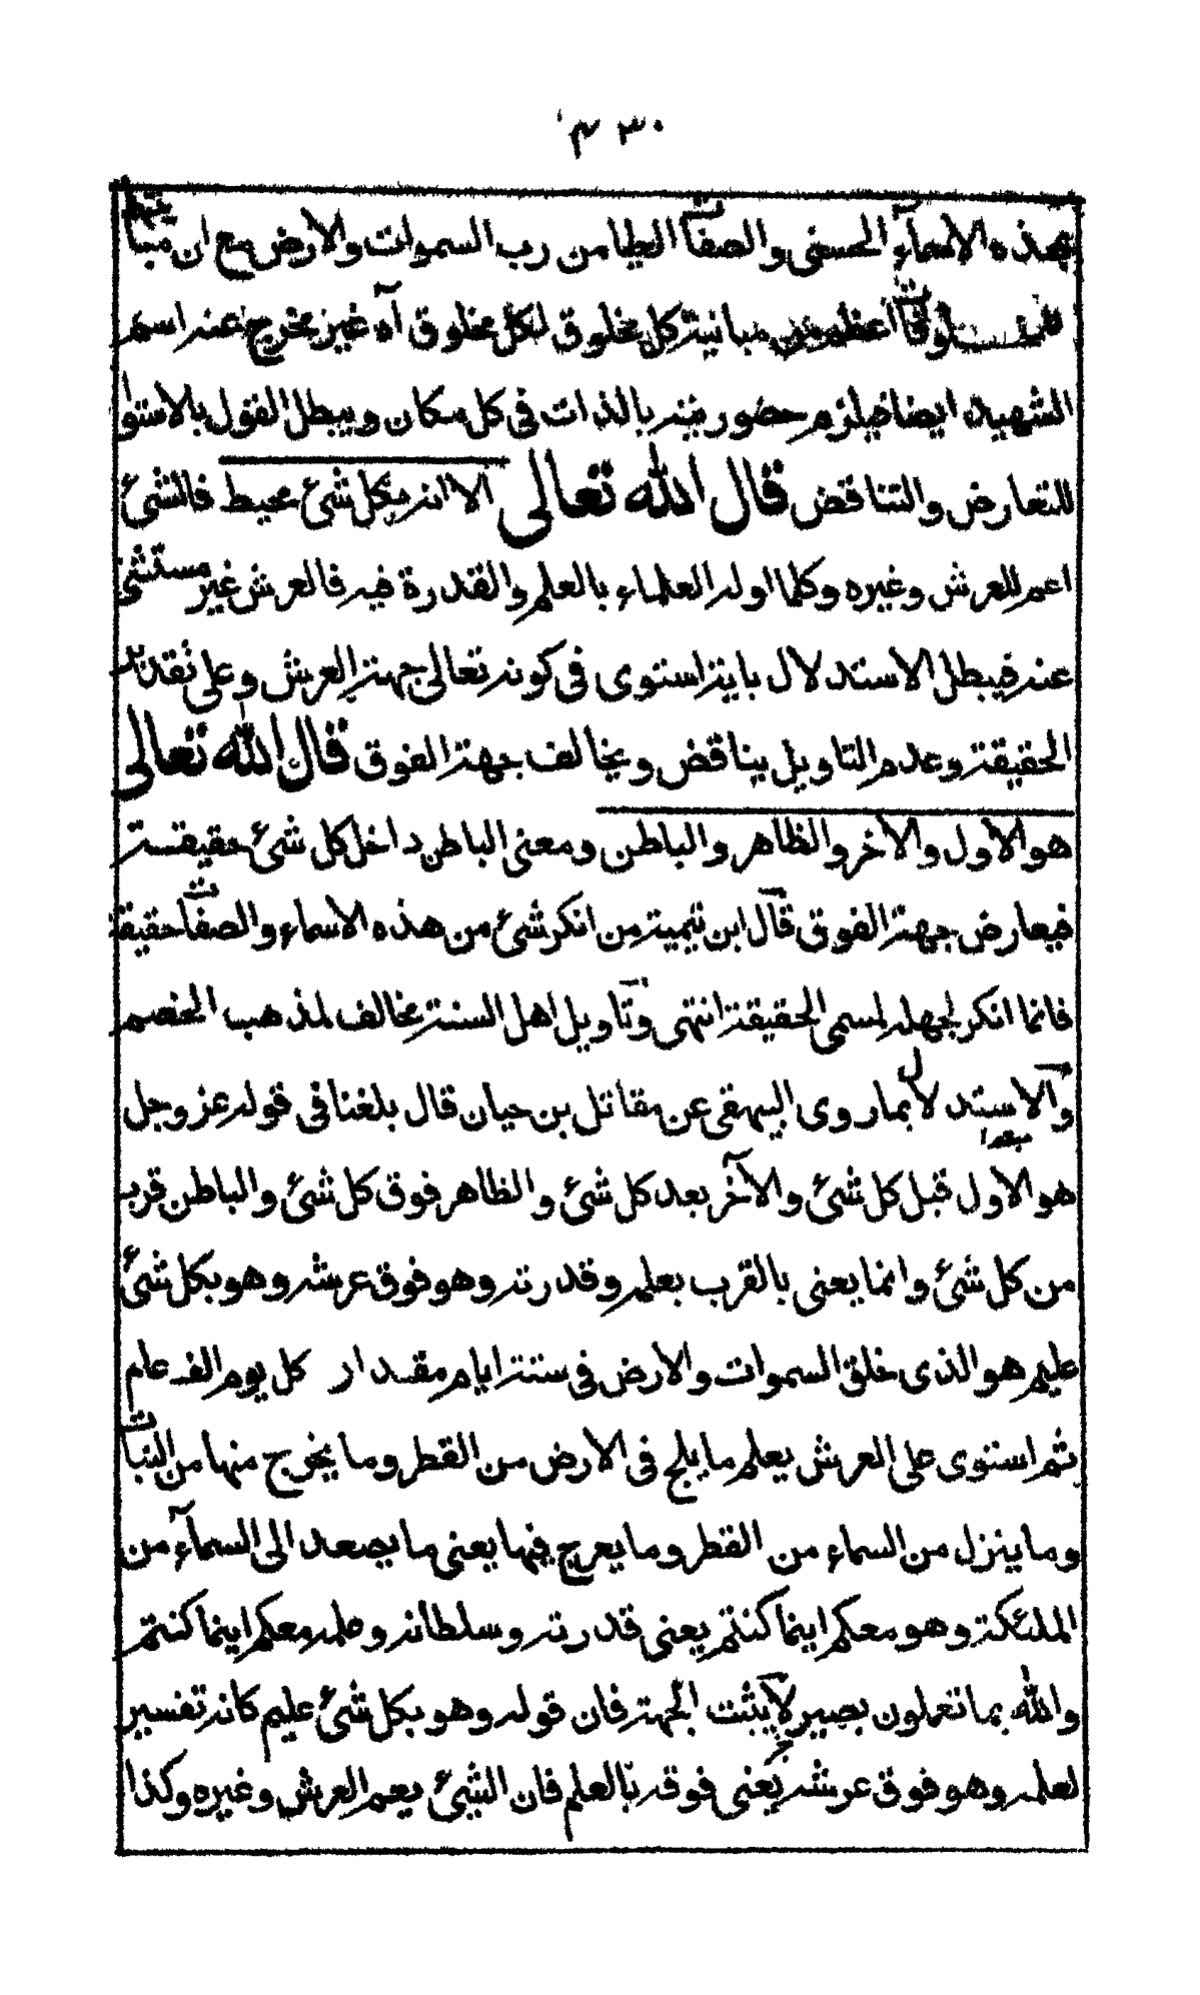 ٤٣٠
بهذه الاسماء الحسنى والصفات العليا من رب السموات والارض مع ان مباينتها
اعظم من مباينة كل مخلوق لكل مخلوق آه غير مخرج عنه اسم
الشهيد ايضا فيلزم حضوره بالذات فى كل مكان ويبطل القول بالاستوا
للتعارض والتناقض قال الله تعالى الا انه بكل شئ محيط فالشئ
اعم للعرش وغيره وكلما اوله العلماء بالعلم والقدرة فيه فالعرش غير مستثنى
عنه فيبطل الاستدلال باية استوى فى كونه تعالى جهة العرش وعلى تقدير
الحقيقة وعدم التاويل يناقض ويخالف جهة الفوق قال الله تعالى
هو الاول والآخر والظاهر والباطن ومعنى الباطن داخل كل شئ حقيقة
فيعارض جهة الفوق قال ابن تيمية من انكر شئ من هذه الاسماء والصفات حقيقة
فانما انكر لجهله لمسمى الحقيقة انتهى وتاويل اهل السنة مخالف لمذهب الخصم
والاستدلال بما روى البيهقى عن مقاتل بن حيان قال بلغنا فى قوله عز وجل
هو الاول قبل كل شئ والآخر بعد كل شئ والظاهر فوق كل شئ والباطن قرب
من كل شئ وانما يعنى بالقرب بعلمه وقدرته وهو فوق عرشه وهو بكل شئ
عليم هو الذى خلق السموات والارض فى ستة ايام مقدار كل يوم الف عام
ثم استوى على العرش يعلم ما يلج فى الارض من القطر وما يخرج منها من النبات
وما ينزل من السماء من القطر وما يعرج فيها يعنى ما يصعد الى السماء من
الملئكة وهو معكم اينما كنتم يعنى قدرته وسلطانه وعلمه معكم اينما كنتم
والله بما تعملون بصير لا يثبت الجهة فان قوله وهو بكل شئ عليم كانه تفسير
لعلمه وهو فوق عرشه يعنى فوقه بالعلم فان الشئ يعم العرش وغيره وكذا